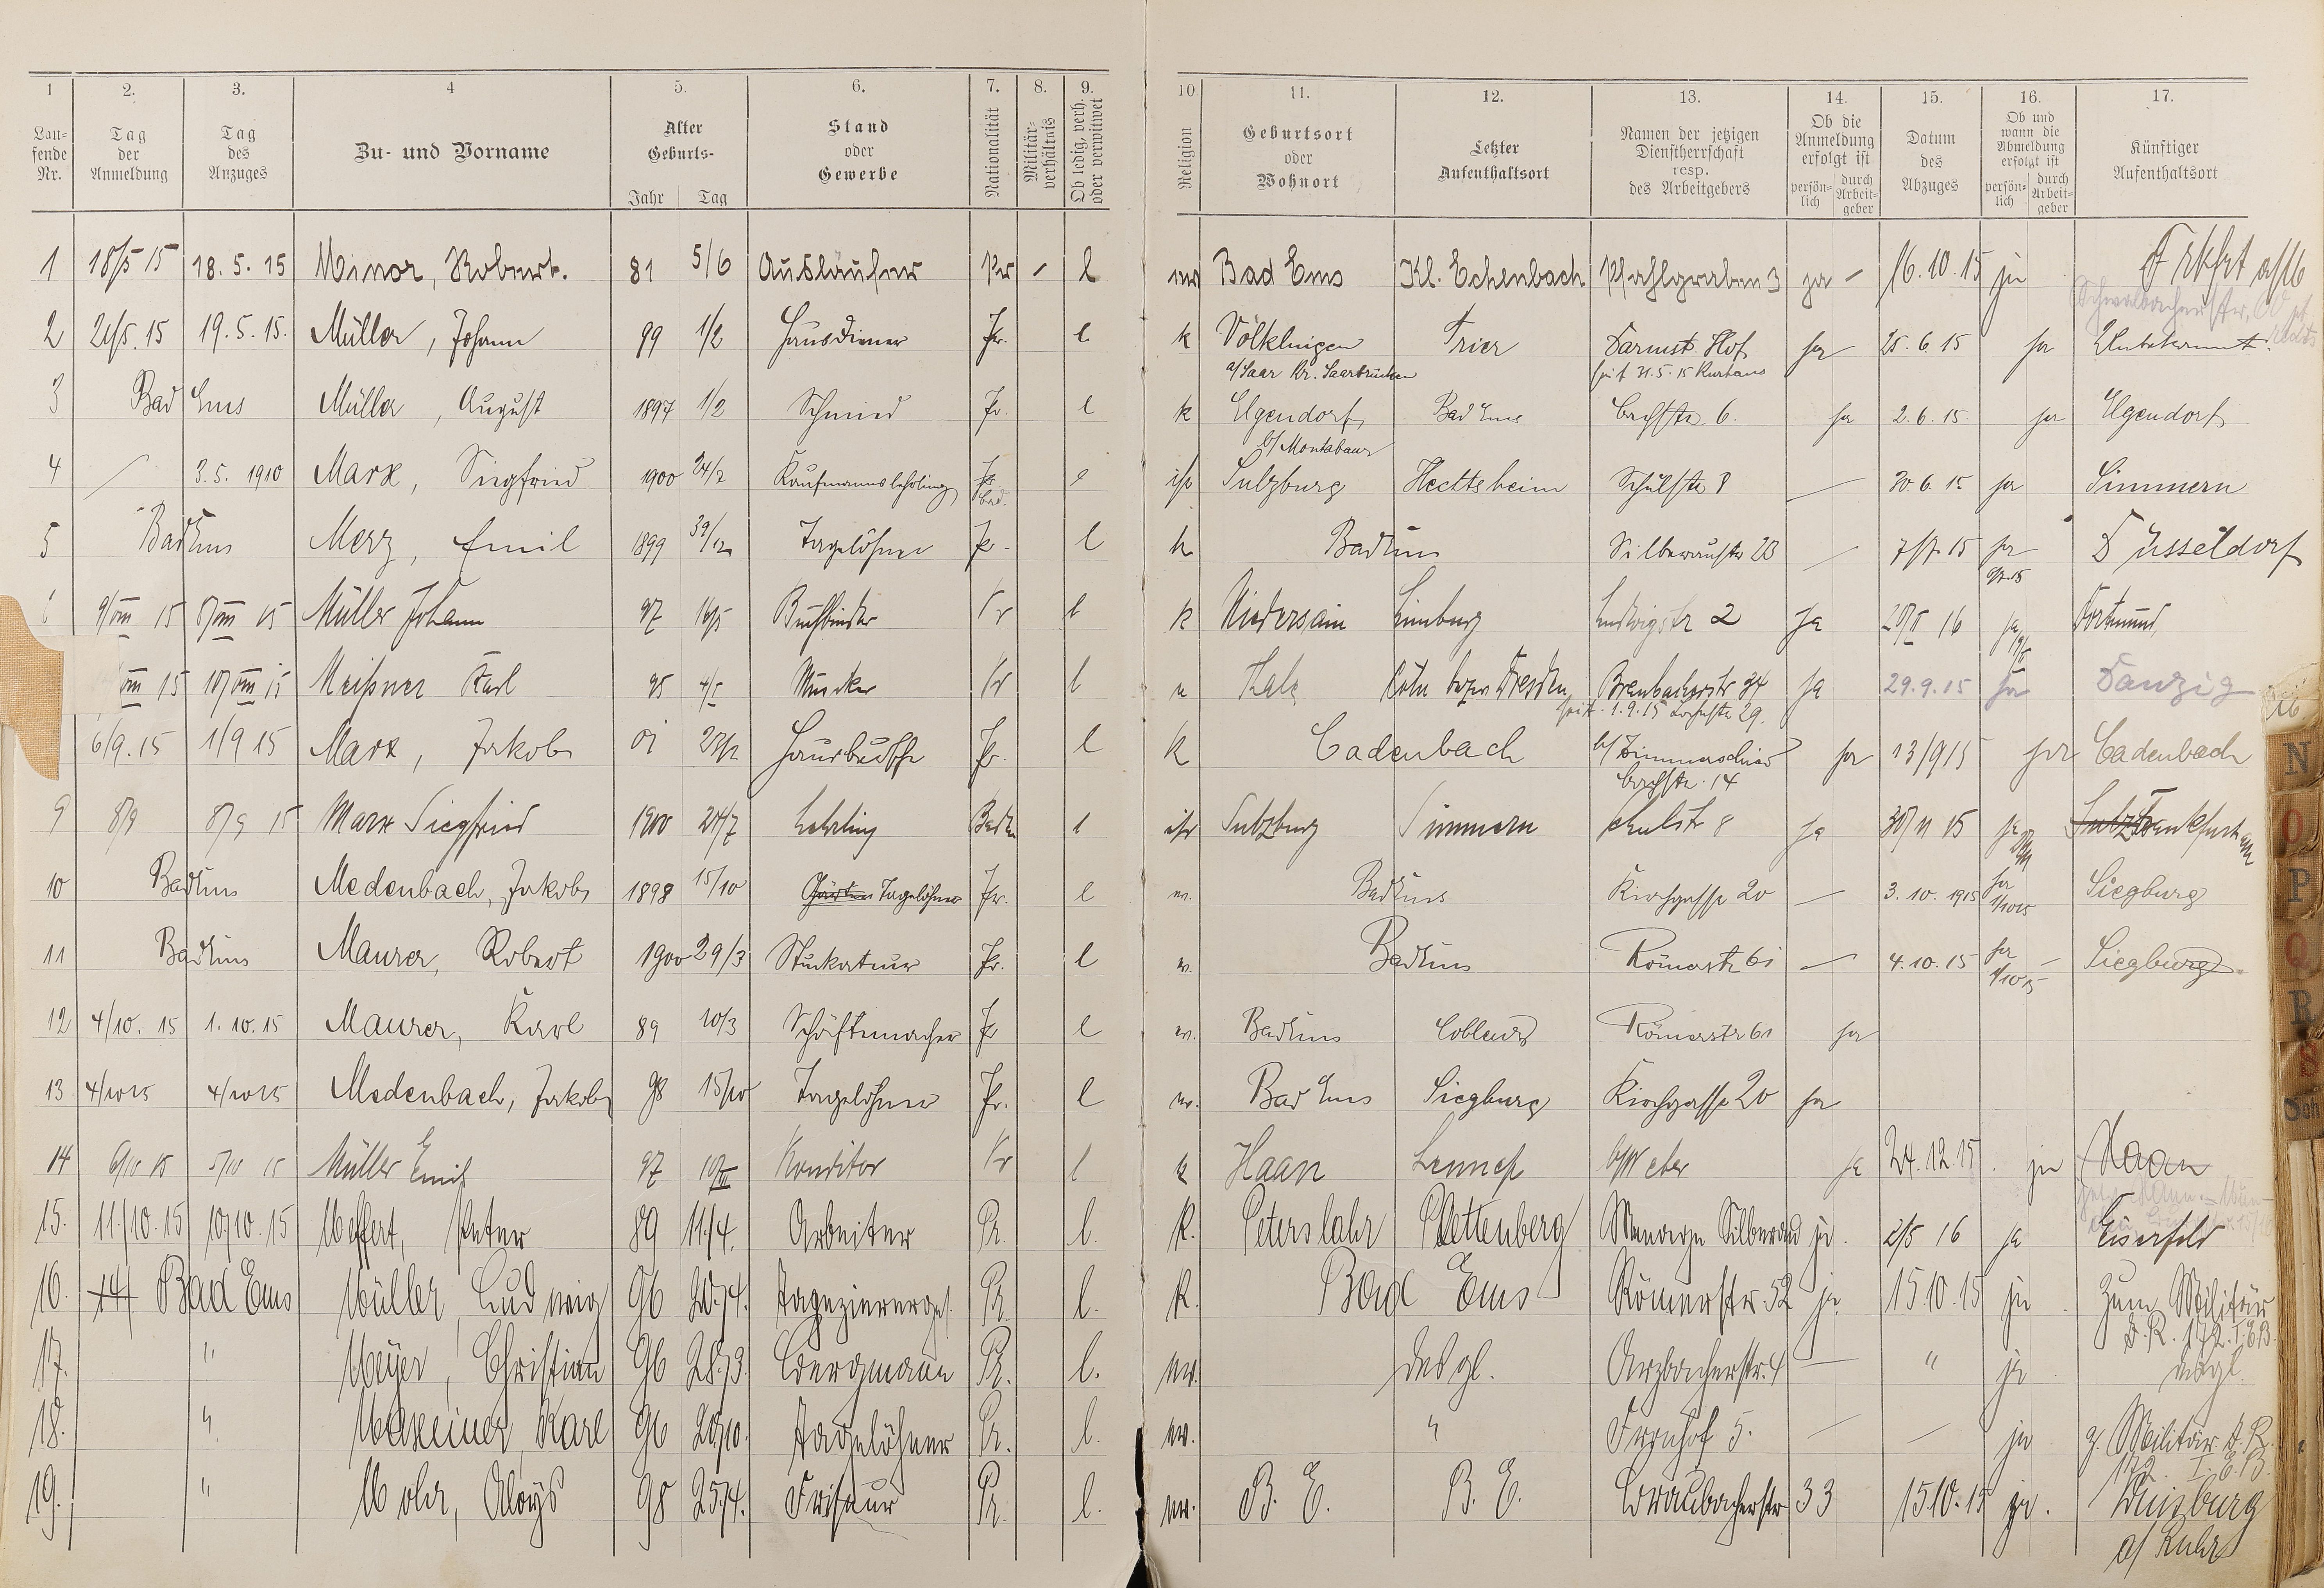 1 2. 3. 4 5. 6. 7. 8. 9. 10 11. 12. 13. 14. 15. 16. 17.
Lau-
fende
Nr.
Tag
der
Anmeldung
Tag
des
Anzuges
Zu- und Vorname
Alter
Geburts-
Jahr Tag
Stand
oder
Gewerbe
Nationalität
Militär-
verhältnis
Ob ledig, verh.
oder verwitwet
Religion
Geburtsort
oder
Wohnort
Letzter
Aufenthaltsort
Namen der jetzigen
Dienstherrschaft
resp.
des Arbeitgebers
Ob die
Anmeldung
erfolgt ist
persön-
lich
durch
Arbeit-
geber
Datum
des
Abzuges
Ob und
wann die
Abmeldung
erfolgt ist
persön-
lich
durch
Arbeit-
geber
Künftiger
Aufenthaltsort
1 18/5 15 18. 5. 15 Minor, Robert. 81 5/6 Ausläufer Pr - l ev Bad Ems Kl. Echenbach Pfahlgraben 3 ja - 16. 10. 15 ja Frkfrt a/M
2 21/5. 15 19. 5. 15. Müller, Johann 99 1/2 Hausdiener Pr. l k Völklingen Trier Darmst. Hof ja 25. 6. 15 ja Unbekannt
a/Saar Kr. Saarbrücken seit 31. 5. 15 Kurhaus
3 Bad Ems Müller, August 1897 1/2 Schmied Pr. l k Elgendorf Bad Ems Bachstr. 6. ja 2. 6. 15. ja Elgendorf
b/ Montabaur
4 3. 5. 1910 Marx, Siegfried 1900 24/2 Kaufmannslehrling Bad. l isr Sulzburg Hechtsheim Schulstr 8 — 30. 6. 15 ja Simmern
5 Bad Ems Merz, Emil 1899 Tagelöhner Pr. l k Bad Ems Silberaustr 28 — 7/7. 15 ja Düsseldorf
9/VIII 15 8/VIII 15 Müller Johann 97 16/5 Buchbinder Pr l k Niedersain Limburg Ludwigstr 2 Ja 16 ja Dortmund,
VIII 15 10/VIII 15 Meißner Karl 95 4/5 Musiker Pr l Thale Köln bezw Dresden Ja 29. 9. 15 ja Danzig
seit 1. 9. 15 29.
6/9. 15 1/9 15 Marx, Jakob 01 Hausbursche Pr. l k Cadenbach b/ Zimmerschied ja 13/9 15 ja Cadenbach
Bachstr. 14
9 8/9 8/9 15 Marx Siegfried 1900 24/7 Lehrling Baden l isr Sulzburg Simmern Schulstr 8 Ja 30/11 15 ja Sulzb Frankfurt a/M
10 Bad Ems Medenbach, Jakob 1898 15/10 Tagelöhner Pr. l ev. Bad Ems Kirchgasse 20 — 3. 10. 1915 ja Siegburg
1/10 15
11 Bad Ems Maurer, Robert 1900 29/3 Stuckateur Pr. l ev. Bad Ems Römerstr 61 — 4. 10. 15 ja Siegburg.
1/10 15
12 4/10. 15 1. 10. 15 Maurer, Karl 89 10/3 Schäftemacher Pr l ev. Bad Ems Coblenz Römerstr 61 ja
13 4/10 15 4/10 15 Medenbach, Jakob 98 15/10 Tagelöhner Pr. l ev. Bad Ems Siegburg Kirchgasse 20 ja
14 6/10 15 5/10 15 Müller Emil 97 Konditor Pr l k Haan Lennep b/Weber ja 24. 12. 15. ja Haan
15. 11./10. 15 10/10. 15 Meffert, Peter 89 11./4. Arbeiter Pr. l. k. Peterslahr Plettenberg Menage Silberau ja. 2/5 16 ja Eiserfeld
16. 14 Bad Ems Müller, Ludwig 96 20./4. Tapezierergef. Pr. l. k. Bad Ems Römerstr. 52 ja. 15. 10. 15 ja. Zum Militär
I. R. 172. I. E. B.
17. " Meyer, Christian 96 28./3. Bergmann Pr. l. ev. desgl. Arzbacherstr. 4 — " ja dsgl.
18. " Maxeiner, Karl 96 20/10. Tagelöhner Pr. l. ev. " Fronhof 5. — — ja z. Militär I. R.
172. I. E. B.
19. " Mohr, Aloys 98 25./4. Friseur Pr. l. ev. B. E. B. E. Braubacherstr 33 15. 10. 15 ja. Duisburg
a/ Ruhr
N
O
P
Q
R
S
Sch